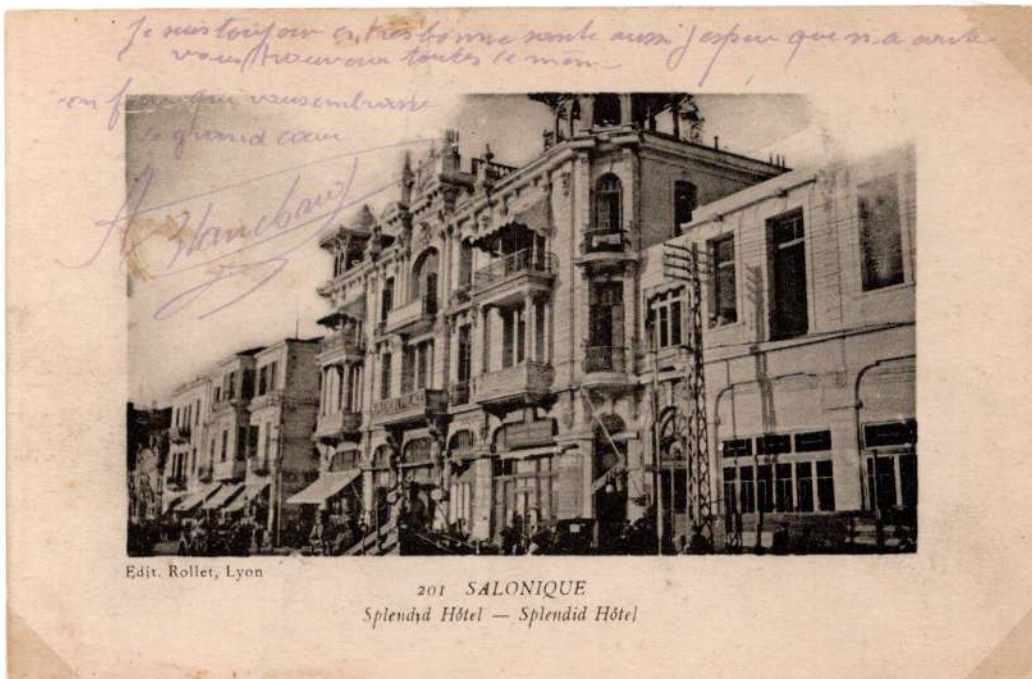 Je suis toujour en tres bonne sante aussi j espere que m a carte
vous trouvera toutes le mem
qui vous embrasse
le grand cœur
A Blanchard
Edit. Rollet, Lyon
201 SALONIQUE
Splendid Hôtel — Splendid Hôtel